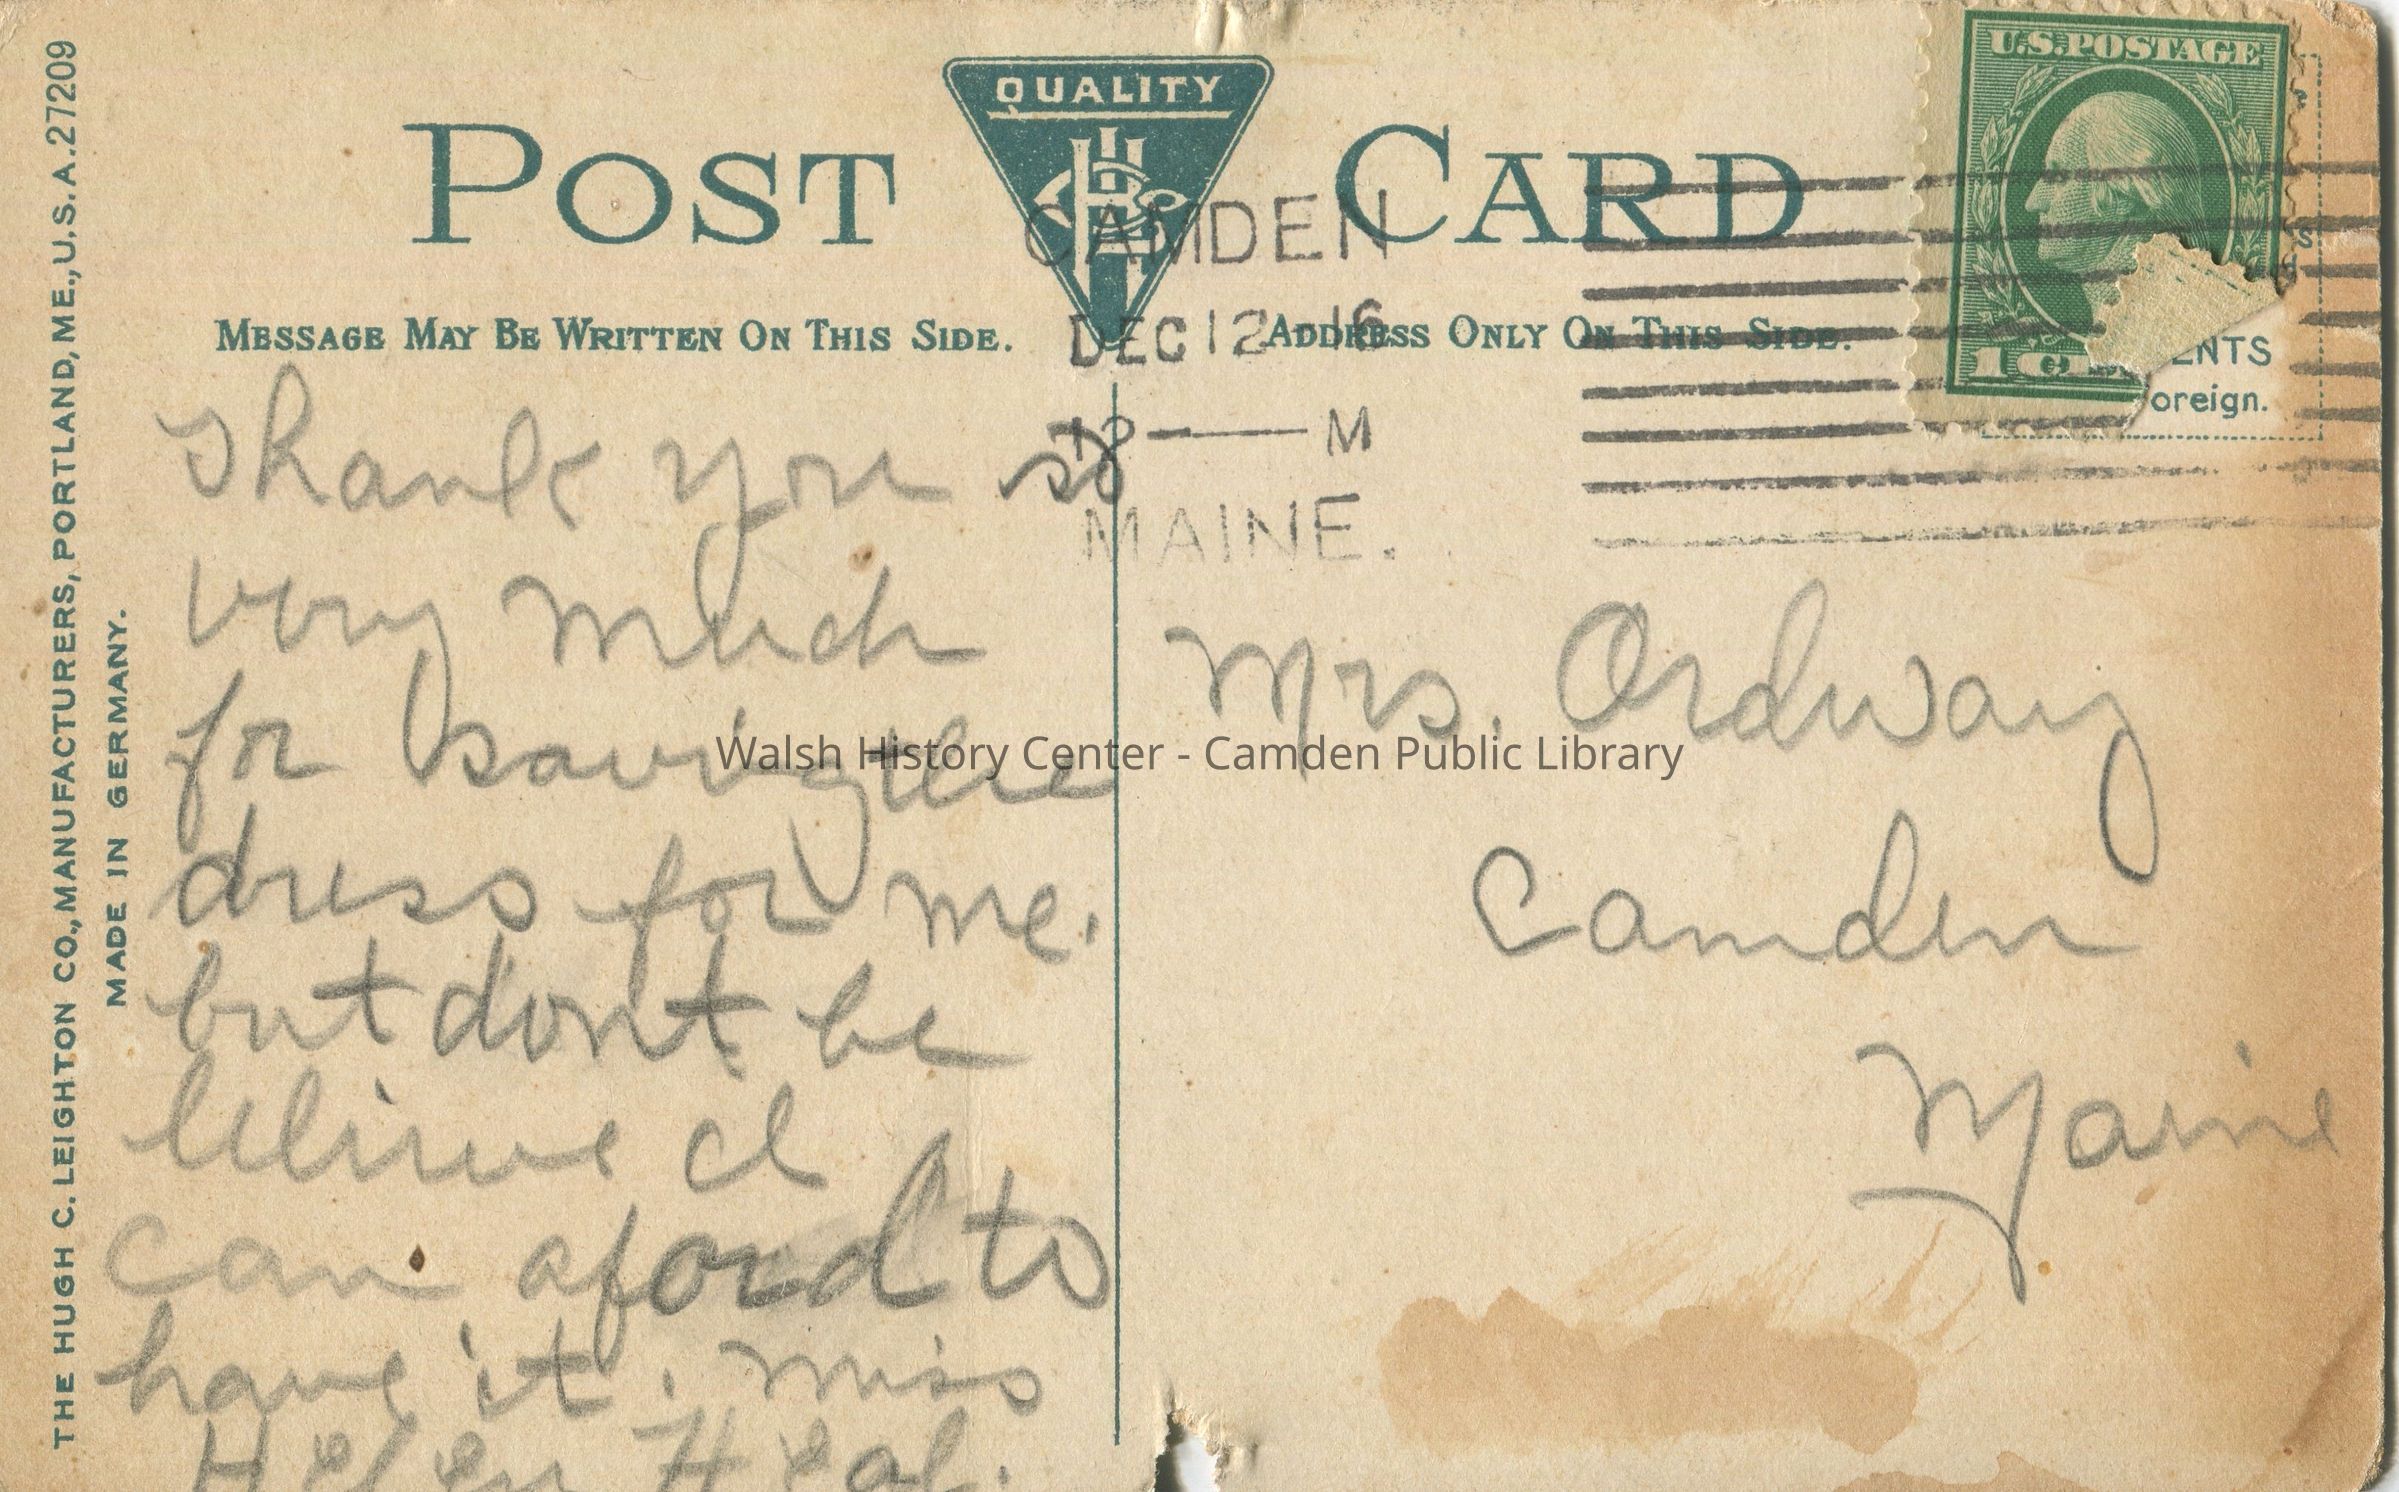 THE HUGH C. LEIGHTON CO., MANUFACTURERS, PORTLAND, ME., U.S.A. 27209
MADE IN GERMANY.
QUALITY
POST CARD
CAMDEN
DEC 12 16
12 — M
MAINE.
U.S. POSTAGE
1
ENTS
oreign.
MESSAGE MAY BE WRITTEN ON THIS SIDE.
ADDRESS ONLY ON THIS SIDE.
Thank you so
very much
for saving the
dress for me.
but dont be
believe I
can aford to
have it. Miss
Helen Heal.
Mrs. Ordway
Camden
Maine
Walsh History Center - Camden Public Library